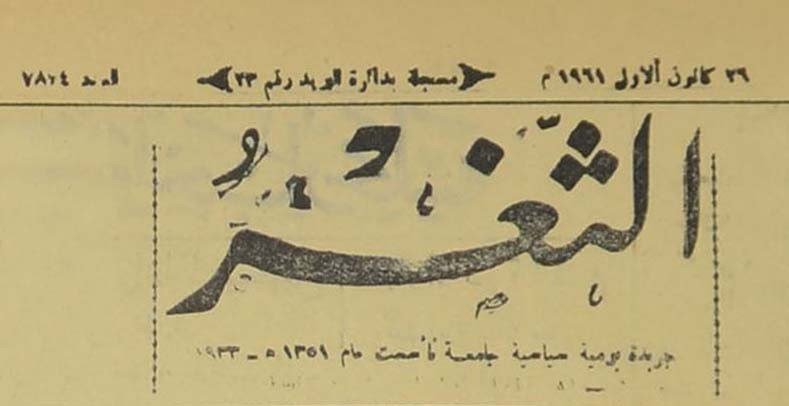 ٢٦ كانون الاول ١٩٦١ م (مسجلة بدائرة البريد رقم ٢٣) العدد ٧٨٢٤
الثَّغْرُ
جريدة يومية سياسية جامعة تأسست عام ١٣٥١ ه - ١٩٣٣